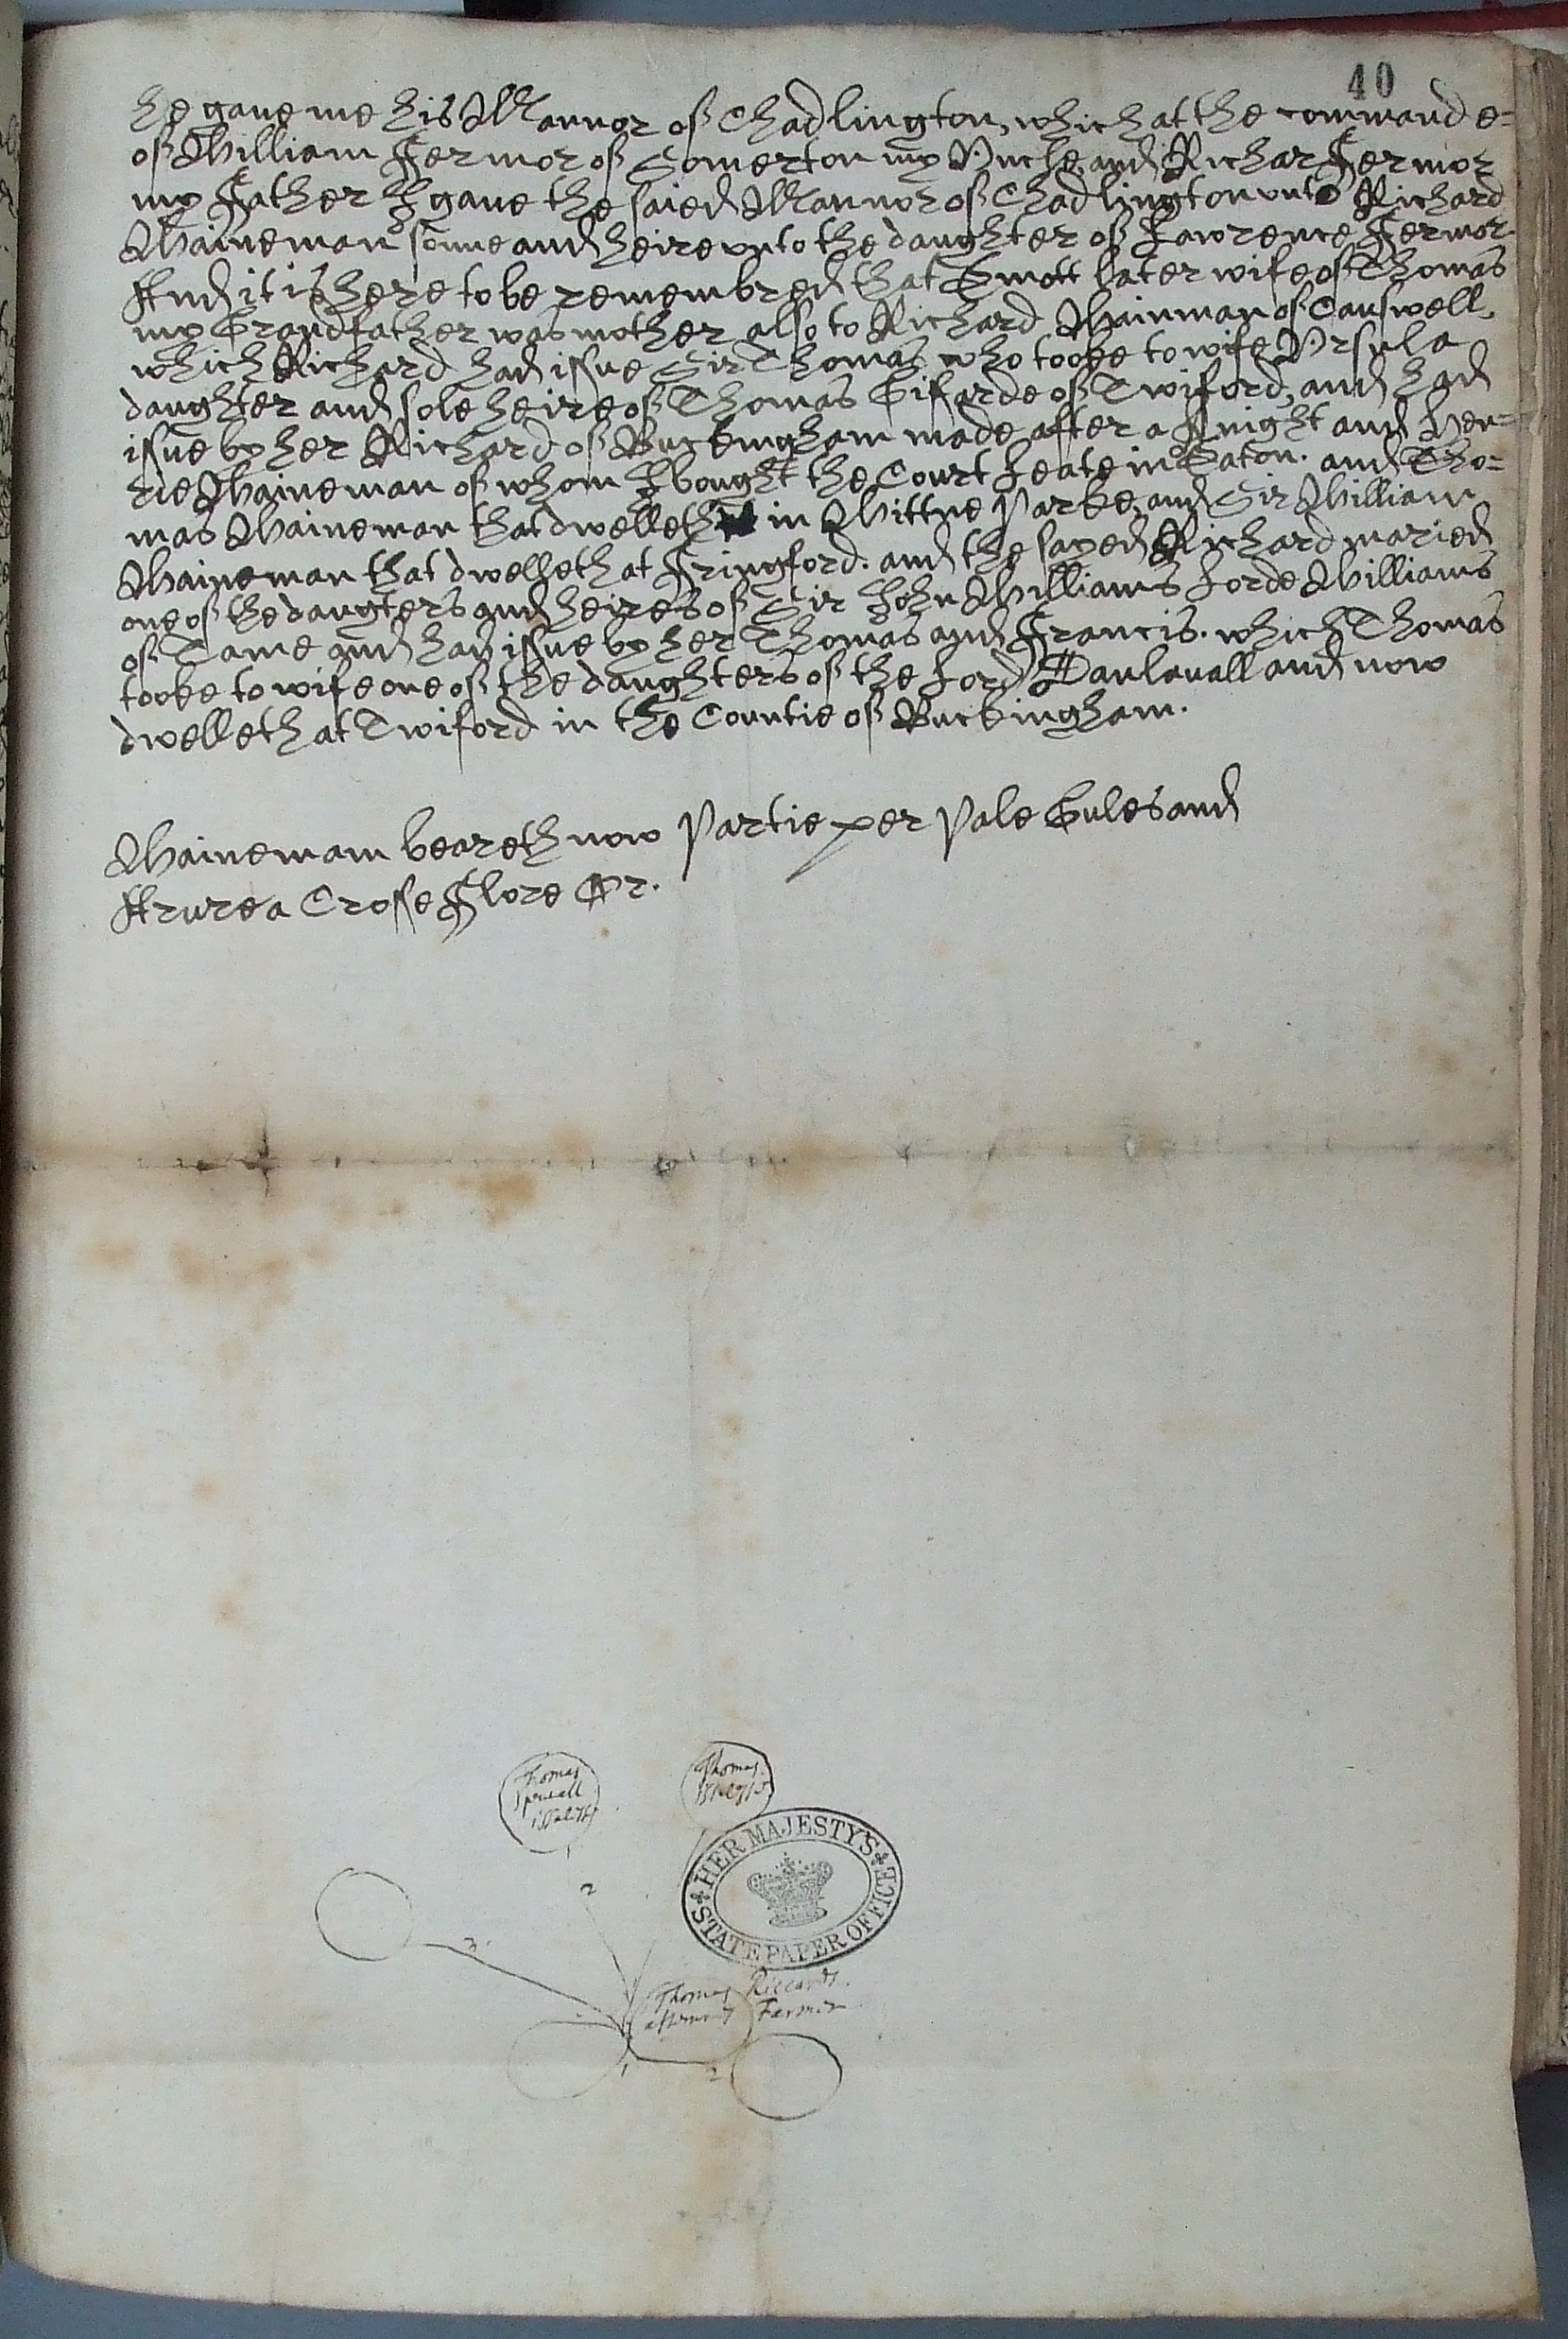 40
he gaue me his Mannor of Chadlington, which at the commande=
of William Fermor of Somerton my Vncle, and Richar Fermor
my Father I gaue the saied Mannor of Chadlington vnto Richard
Waineman sonne and heire vnto the daughter of Lawrence Fermor.
And it is here to be remembred that Emott later wife of Thomas
my Grandfather was mother also to Richard Wainman of Causwell,
which Richard had issue Sir Thomas, who tooke to wife Vrsula
daughter and sole heire of Thomas Gifarde of Twiford, and had
issue by her Richard of Buckingham made after a Knight and Hen=
rie Waineman of whom I bought the Court Leate in Eaton. and Tho=
mas Waineman that dwelleth in Wittne Parke, and Sir William
Waineman that dwelleth at Fringford. and the sayed Richard maried
one of the daugters and heires of Sir John Williams Lorde Williams
of Tame and had issue by her Thomas and Francis. which Thomas
tooke to wife one of the daughters of the Lord Daulauall and now
dwelleth at Twiford in the Countie of Buckingham.
Wainemam beareth now Partie per Pale Gules and
Azure a Crosse Flore Or.
Thomas
Thomas
HER MAJESTY'S
STATE PAPER OFFICE
2
3.
Thomas Riccards.
afterward Farmer
1
2